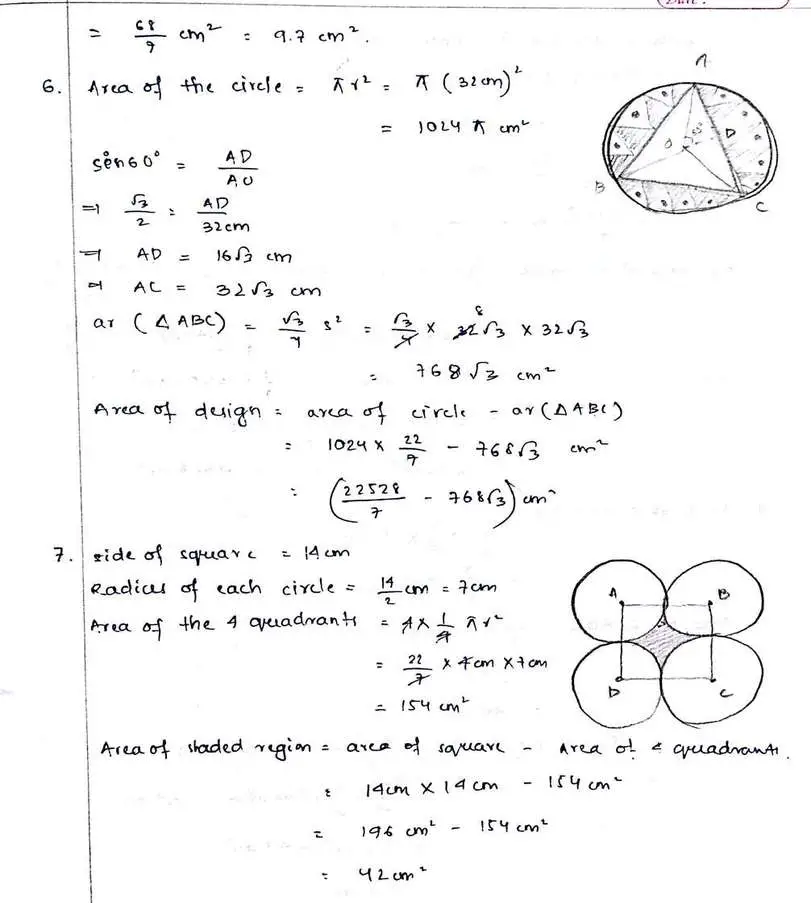 Date:
= 68/7 cm² = 9.7 cm².
6. Area of the circle = πr² = π (32cm)²
= 1024 π cm²
sin60° = AD/AO
⇒ √3/2 = AD/32cm
⇒ AD = 16√3 cm
⇒ AC = 32√3 cm
ar (△ABC) = √3/4 s² = √3/4 × 32√3 × 32√3
8
= 768√3 cm²
Area of design = area of circle - ar(△ABC)
= 1024 × 22/7 - 768√3 cm²
= (22528/7 - 768√3) cm²
A
O
60°
D
B
C
7. side of square = 14cm
Radius of each circle = 14/2 cm = 7cm
Area of the 4 quadrants = 4 × 1/4 πr²
= 22/7 × 7cm × 7cm
= 154 cm²
A B
D C
Area of shaded region = area of square - Area of 4 quadrants.
= 14cm × 14cm - 154 cm²
= 196 cm² - 154 cm²
= 42 cm²